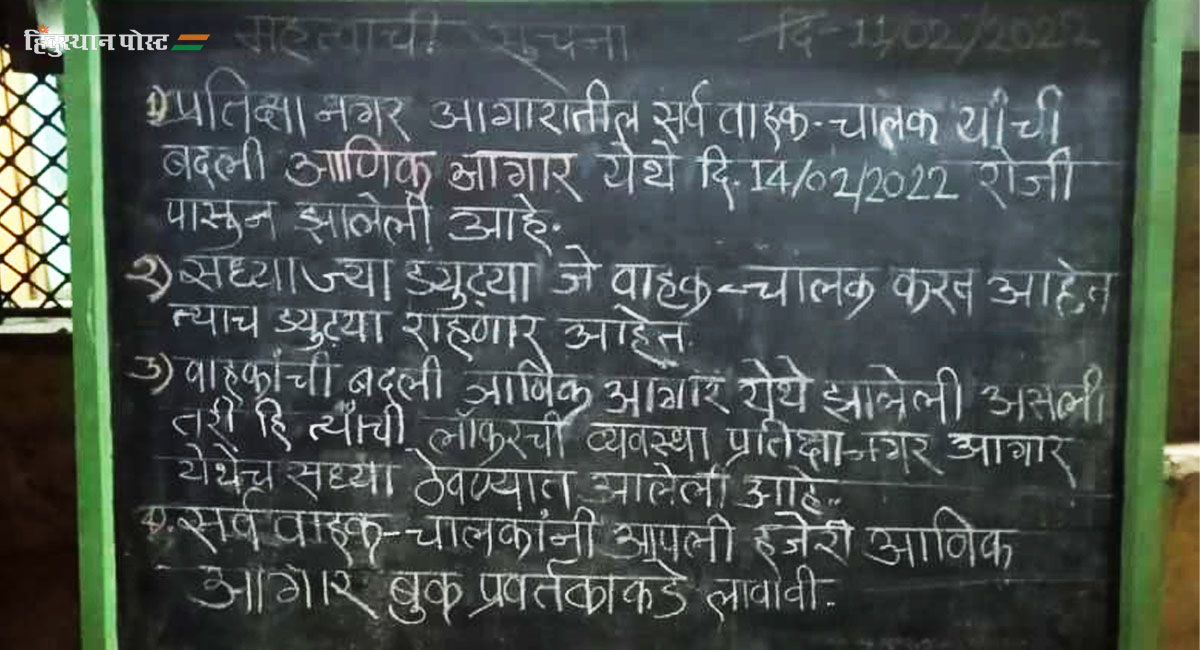 हिंदुस्थान पोस्ट
महत्वाची सुचना दि-11/02/2022
1) प्रतिक्षा नगर आगारातील सर्व वाहक-चालक यांची
बदली आणिक आगार येथे दि.14/02/2022 रोजी
पासुन झालेली आहे.
२) सध्या ज्या ड्युट्या जे वाहक-चालक करत आहेत
त्याच ड्युट्या राहणार आहेत.
३) वाहकांची बदली आणिक आगार येथे झालेली असली
तरी हि त्यांची लॉकरची व्यवस्था प्रतिक्षा नगर आगार
येथेच सध्या ठेवण्यात आलेली आहे..
४. सर्व वाहक-चालकांनी आपली हजेरी आणिक
आगार बुक प्रवर्तकाकडे लावावी.